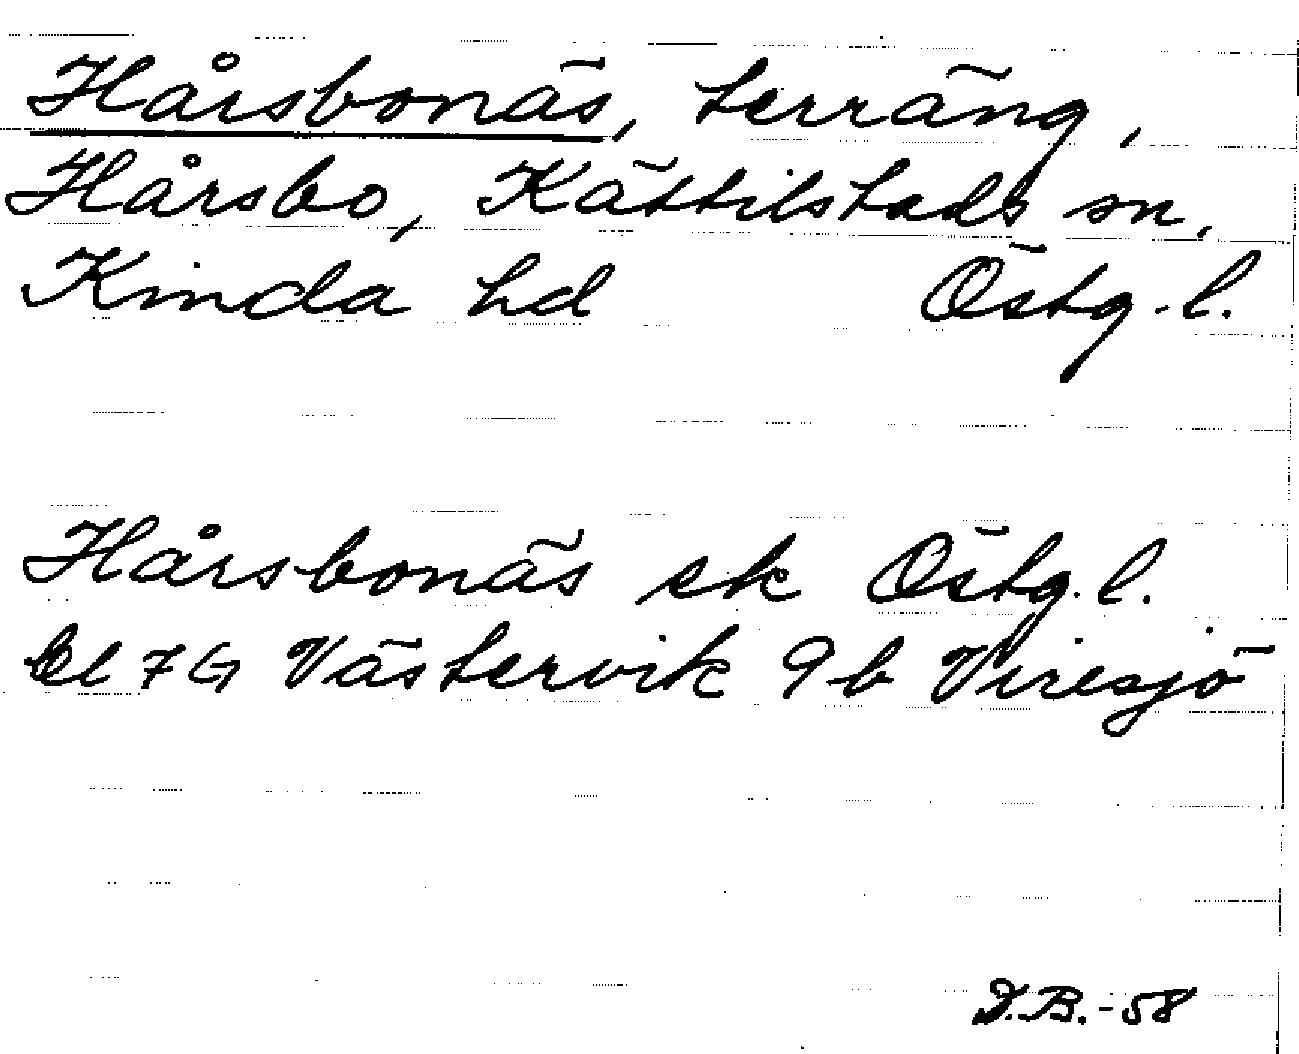 Hårsbonäs, terräng,
Hårsbo, Kättilstads sn,
Kinda hd Östg.l.
Hårsbonäs ek Östg.l.
bl 7G Västervik 9b Viresjö
D.B.-58